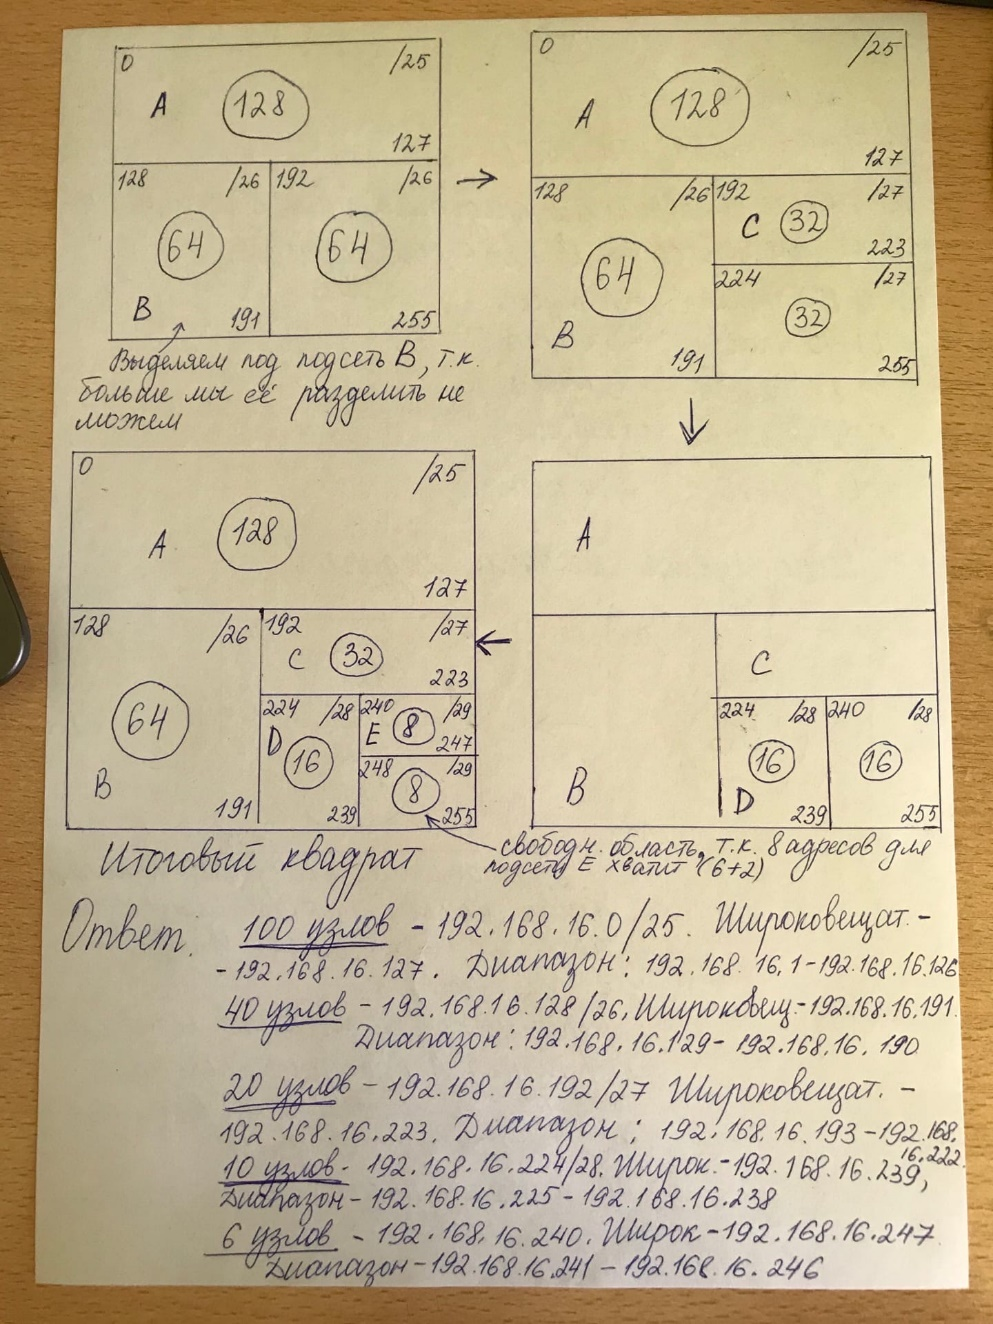 0 /25
A 128
127
128 /26 192 /26
64 64
B 191 255
Выделяем под подсеть B, т.к.
больше мы её разделить не
можем
0 /25
A 128
127
128 /26 192 /27
C 32
223
64 224 /27
32
B 191 255
A
C
224 /28 240 /28
16 16
B D 239 255
0 /25
A 128
127
128 /26 192 /27
C 32
223
64 224 /28 240 /29
D E 8
16 247
248 /29
8
B 191 239 255
Итоговый квадрат
свободн. область, т.к. 8 адресов для
подсети E хватит (6+2)
Ответ. 100 узлов - 192.168.16.0/25. Широковещат. -
- 192.168.16.127. Диапазон: 192.168.16.1-192.168.16.126
40 узлов - 192.168.16.128/26, Широковещ.-192.168.16.191.
Диапазон: 192.168.16.129- 192.168.16.190
20 узлов - 192.168.16.192/27 Широковещат. -
192.168.16.223. Диапазон: 192.168.16.193-192.168.
16.222
10 узлов- 192.168.16.224/28. Широк.-192.168.16.239,
Диапазон-192.168.16.225-192.168.16.238
6 узлов - 192.168.16.240. Широк-192.168.16.247
Диапазон-192.168.16.241-192.168.16.246